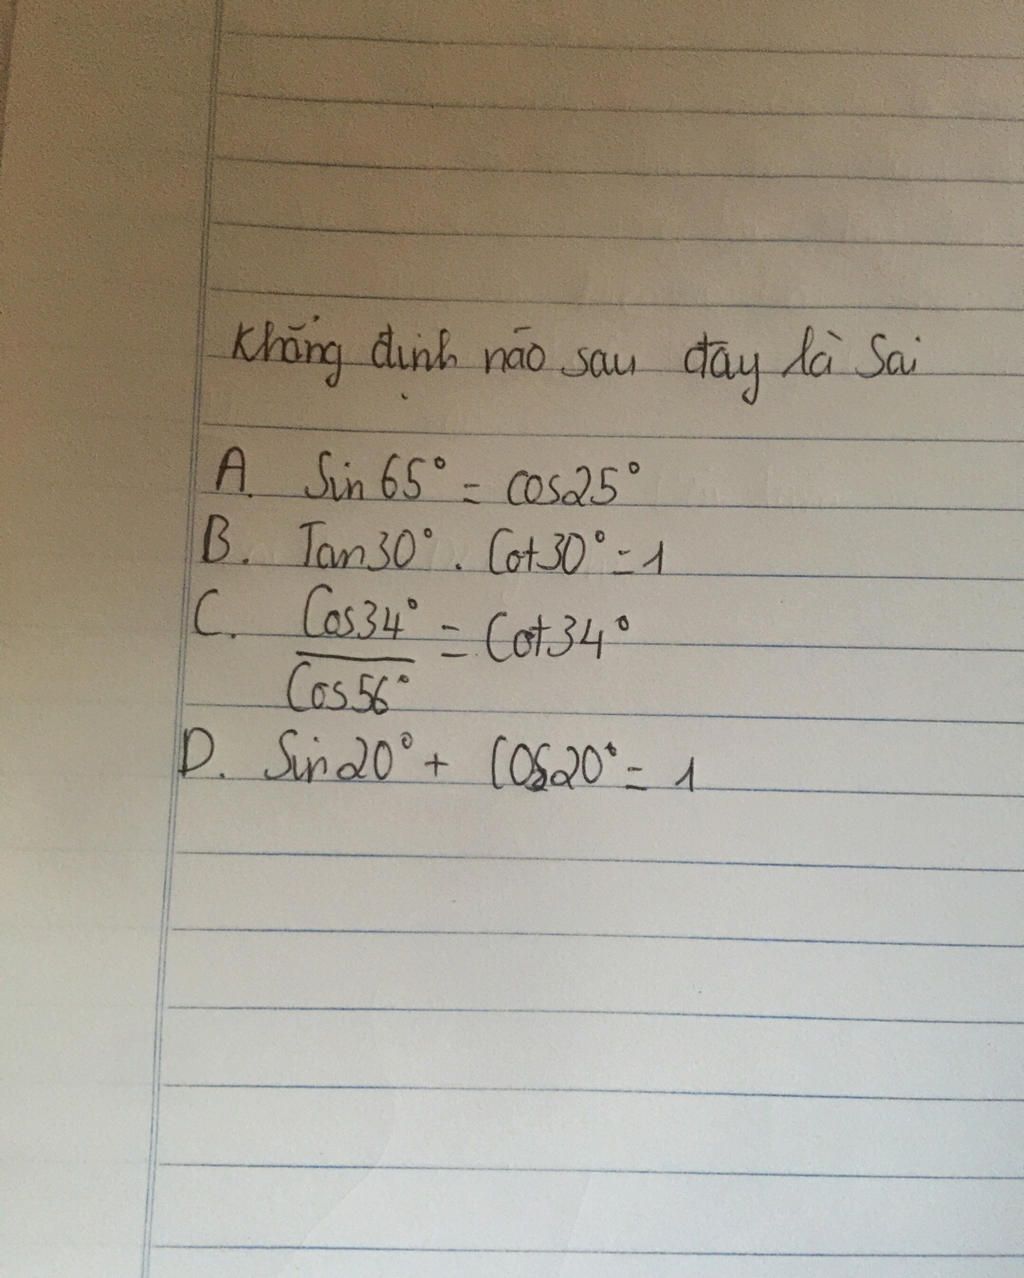 Khẳng định nào sau đây là Sai
A. Sin 65° = cos25°
B. Tan30° . Cot30° = 1
C. Cos34° / Cos56° = Cot34°
D. Sin20° + Cos20° = 1